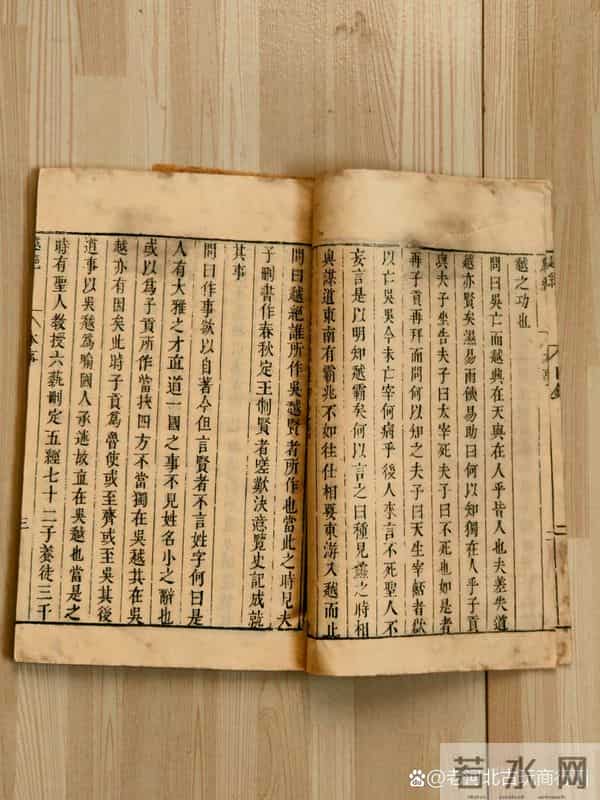 越之功也
問曰吳亡而越興在天與在人乎皆人也夫差失道
越亦賢矣濕易雨饑易助曰何以知獨在人乎子貢
與夫子坐告夫子曰太宰死夫子曰不死也如是者
再子貢再拜而問何以知之夫子曰天生宰嚭者欲
以亡吳吳今未亡宰何病乎後人來言不死聖人不
妄言是以明知越霸矣何以言之曰種見蠡之時相
與謀道東南有霸兆不如往仕相要東游入越而止
問曰越絕誰所作吳越賢者所作也當此之時見夫
子刪書作春秋定王制賢者嗟歎決意覽史記成就
其事
問曰作事欲以自著今但言賢者不言姓字何曰是
人有大雅之才直道一國之事不見姓名小之辭也
或以為子貢所作當挾四方不當獨在吳越其在吳
越亦有因矣此時子貢為魯使或至齊或至吳其後
道事以吳越為喻國人承述故直在吳越也當是之
時有聖人教授六藝刪定五經七十二子養徒三千
越絕
本事
三
二
若水网